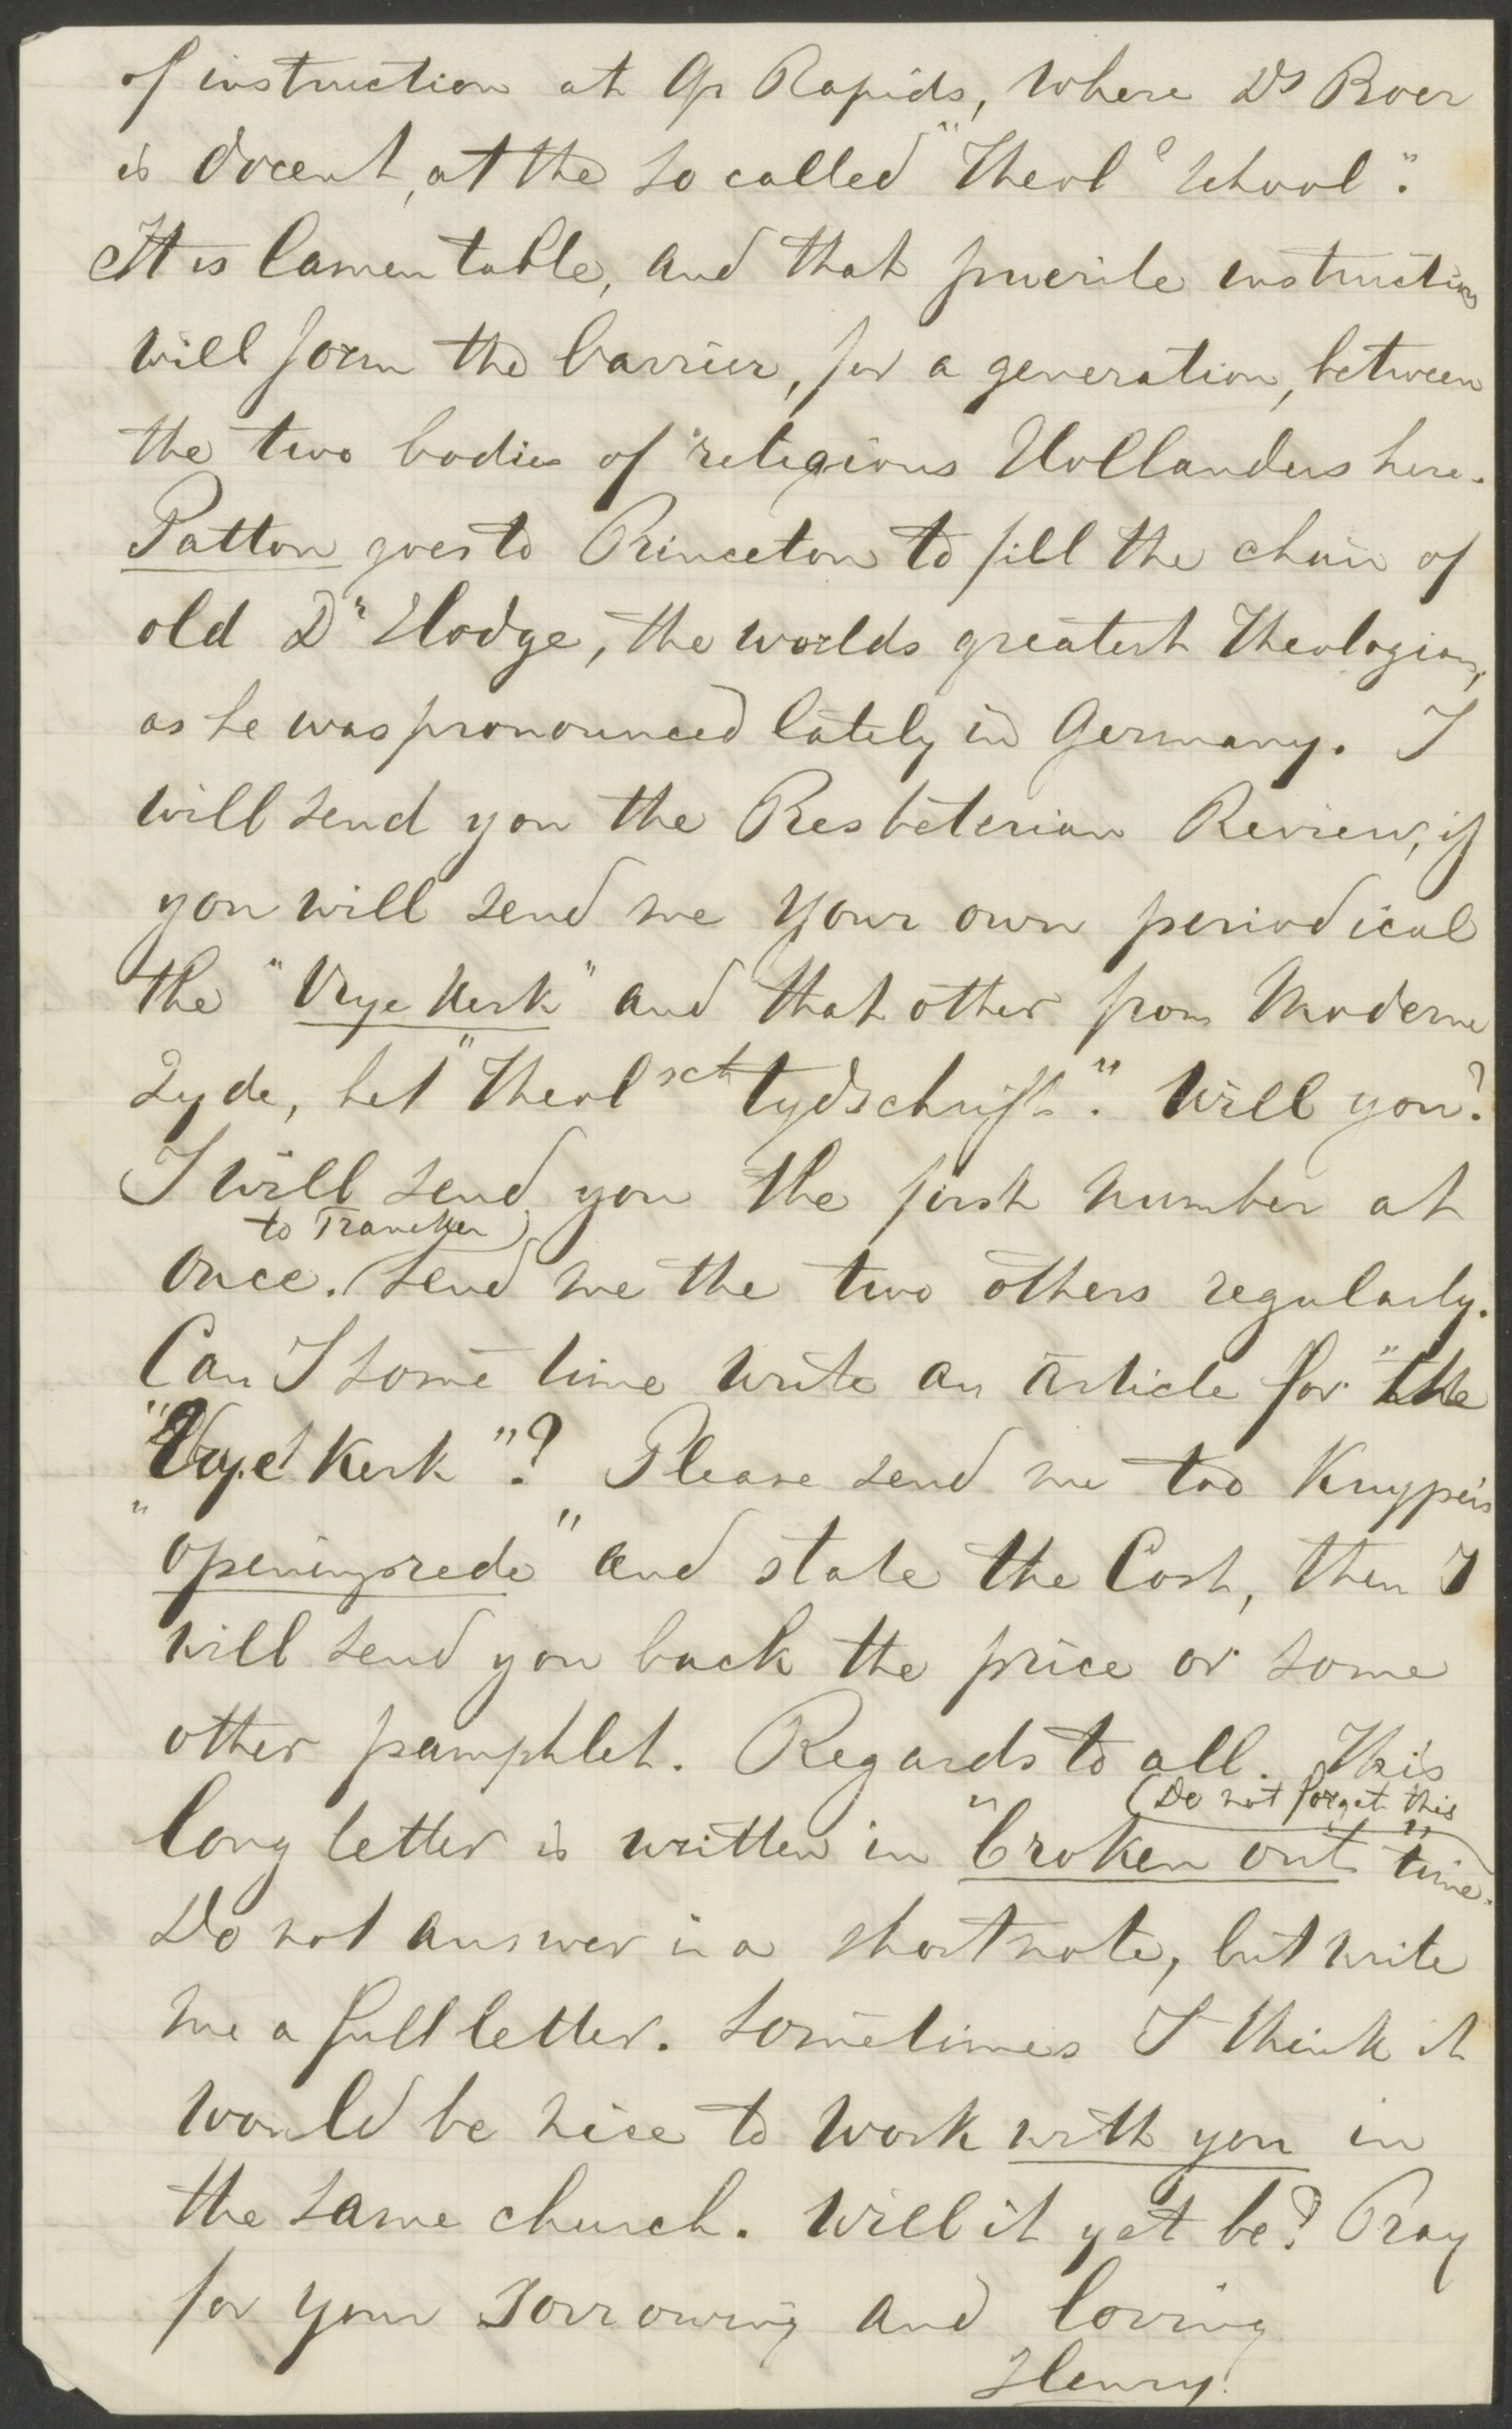 of instruction at Gr Rapids, where Ds Boer
is docent, at the so called "Theol. School".
It is lamentable, and that puerile instruction
will form the barrier, for a generation, between
the two bodies of religious Hollanders here.
Patton goes to Princeton to fill the chair of
old Dr Hodge, the worlds greatest Theologian,
as he was pronounced lately in Germany. I
will send you the Presbeterian Review, if
you will send me your own periodical
the "Vrye Kerk" and that other from Moderne
Zyde, het "Theol sch tydschrift". Will you?
I will send you the first number at
to Franeker
once. (Send me the two others regularly.
Can I some time write an article for "the
"Vrye Kerk"? Please send me too Kuypers
"openingsrede" and state the Cost, then I
will send you back the price or some
other pamphlet. Regards to all. This
(Do not forget this
long letter is written in "broken out" time.
Do not answer in a short note, but write
me a full letter. Sometimes I think it
would be nice to work with you in
the same church. Will it yet be? Pray
for your sorrowing and loving
Henry.